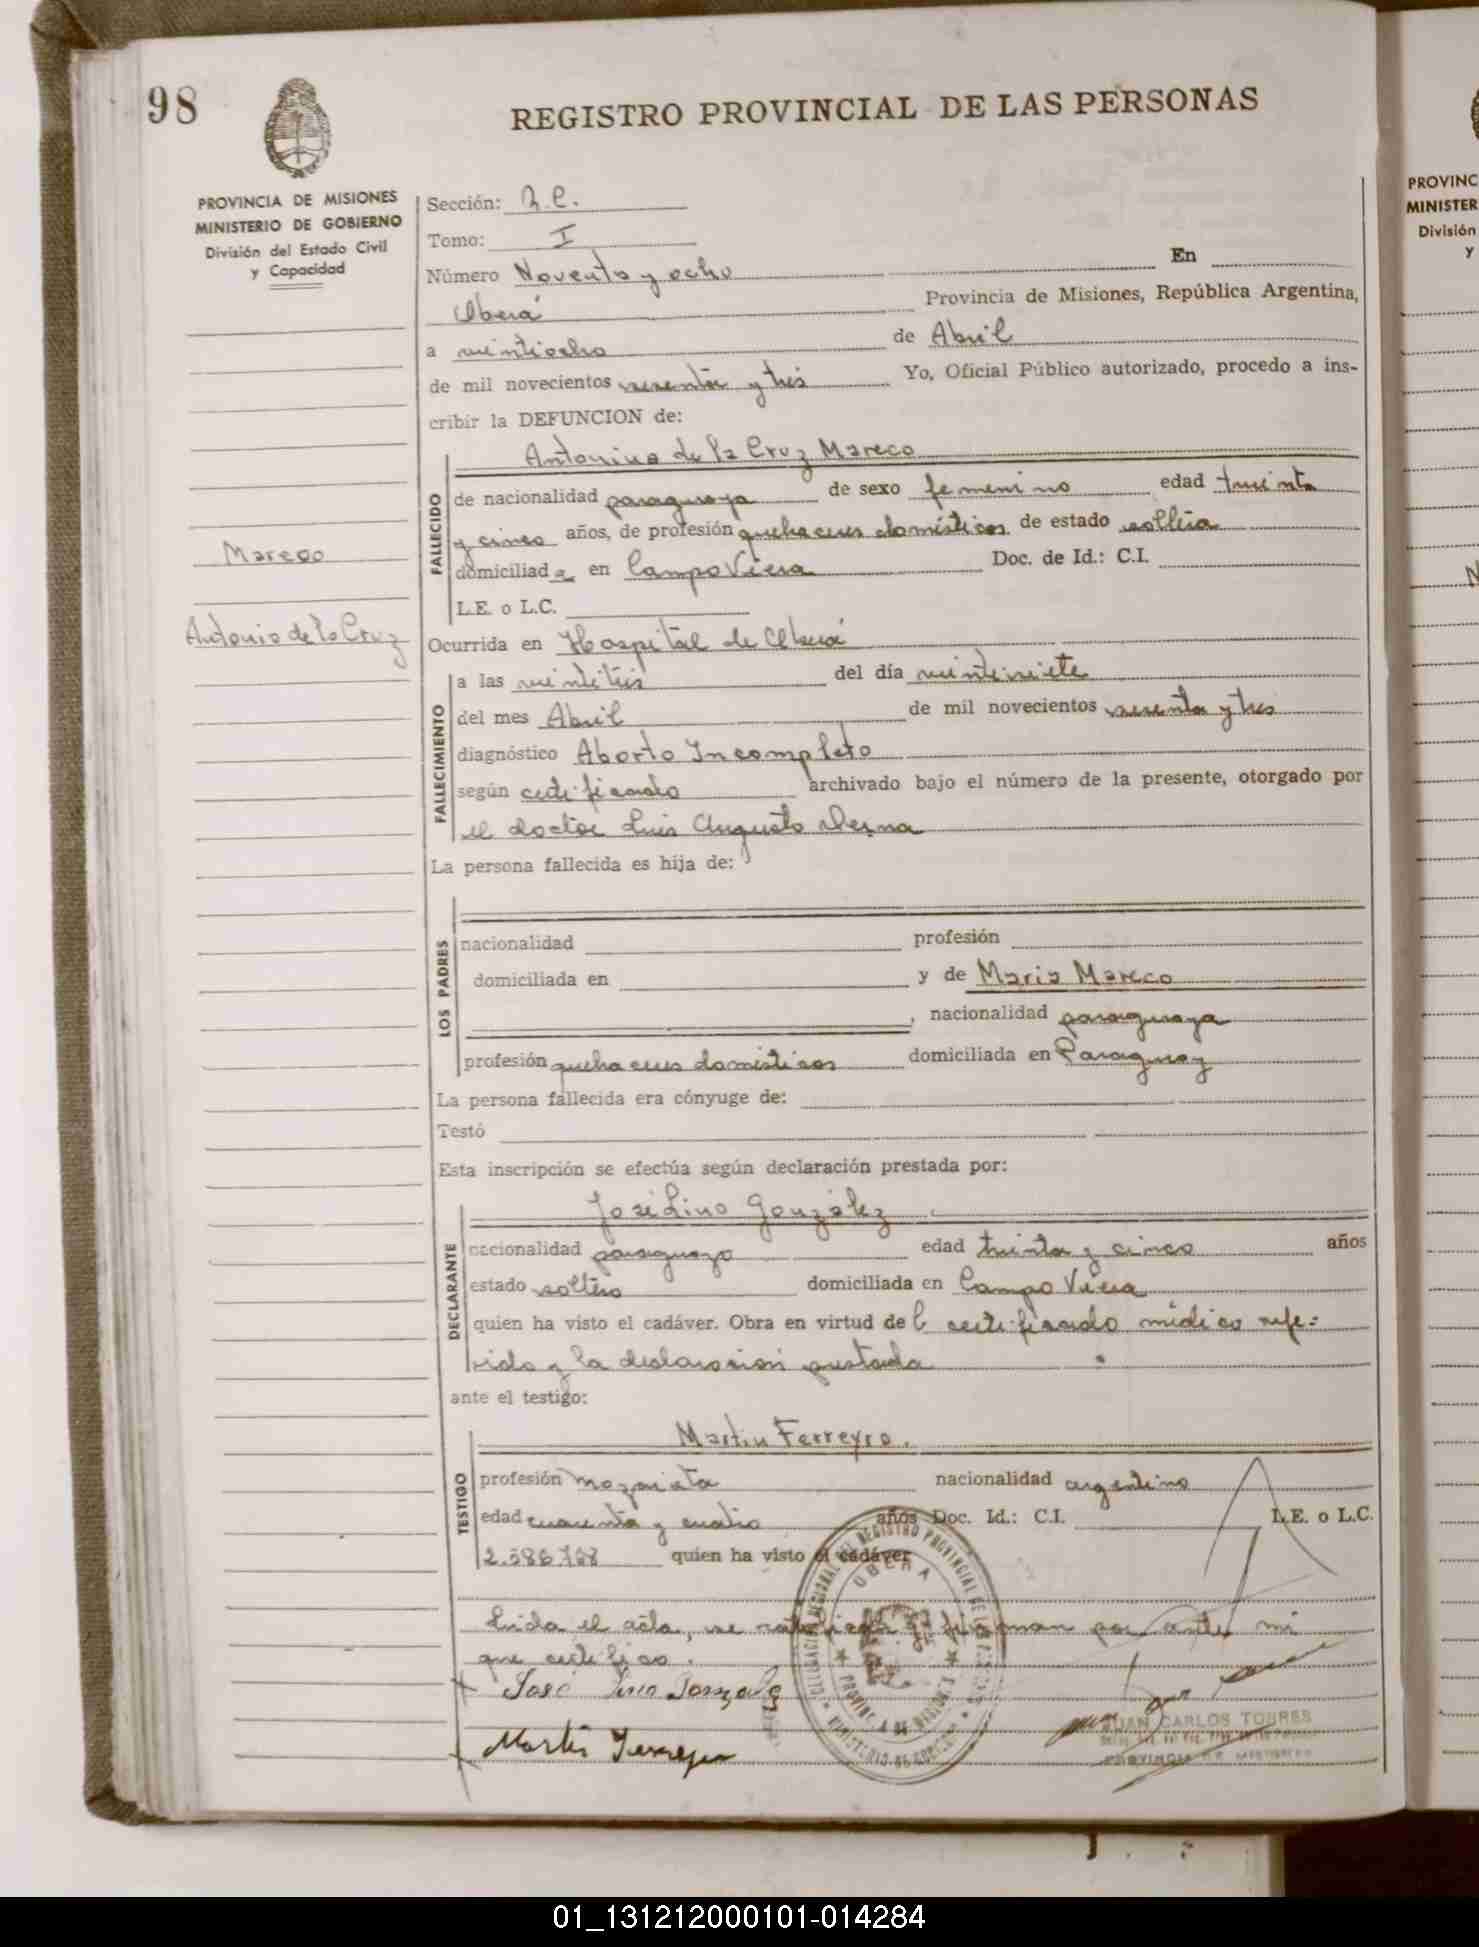 98
REGISTRO PROVINCIAL DE LAS PERSONAS
PROVINCIA DE MISIONES
MINISTERIO DE GOBIERNO
División del Estado Civil
y Capacidad
Mareco
Antonio de la Cruz
Sección:
Tomo: I
Número Noventa y ocho En
Oberá Provincia de Misiones, República Argentina,
a veintiocho de Abril
de mil novecientos sesenta y tres Yo, Oficial Público autorizado, procedo a ins-
cribir la DEFUNCION de:
Antonina de la Cruz Mareco
FALLECIDO
de nacionalidad paraguaya de sexo femenino edad treinta
y cinco años, de profesión quehaceres domésticos de estado soltera
domiciliada en Campo Viera Doc. de Id.: C.I.
L.E. o L.C.
Ocurrida en Hospital de Oberá
FALLECIMIENTO
a las veintitrés del día veintisiete
del mes Abril de mil novecientos sesenta y tres
diagnóstico Aborto Incompleto
según certificado archivado bajo el número de la presente, otorgado por
el doctor Luis Augusto
La persona fallecida es hija de:
LOS PADRES
nacionalidad profesión
domiciliada en y de Maria Mareco
, nacionalidad paraguaya
profesión quehaceres domésticos domiciliada en Paraguay
La persona fallecida era cónyuge de:
Testó
Esta inscripción se efectúa según declaración prestada por:
José Lino González
DECLARANTE
nacionalidad paraguayo edad treinta y cinco años
estado soltero domiciliada en Campo Viera
quien ha visto el cadáver. Obra en virtud del certificado médico refe-
rido y la declaración prestada
ante el testigo:
Martin Ferreyro.
TESTIGO
profesión mozaista nacionalidad argentino
edad cuarenta y cuatro años Doc. Id.: C.I. L.E. o L.C.
quien ha visto el cadáver
Leida el acta, se ratifican y firman por ante mi
que certifico.
José Lino Gonzalez
Martin Ferreyra
UBERA
JUAN CARLOS TORRES
PROVINCIA DE MISIONES
PROVINC
MINISTER
División
y
01_131212000101-014284